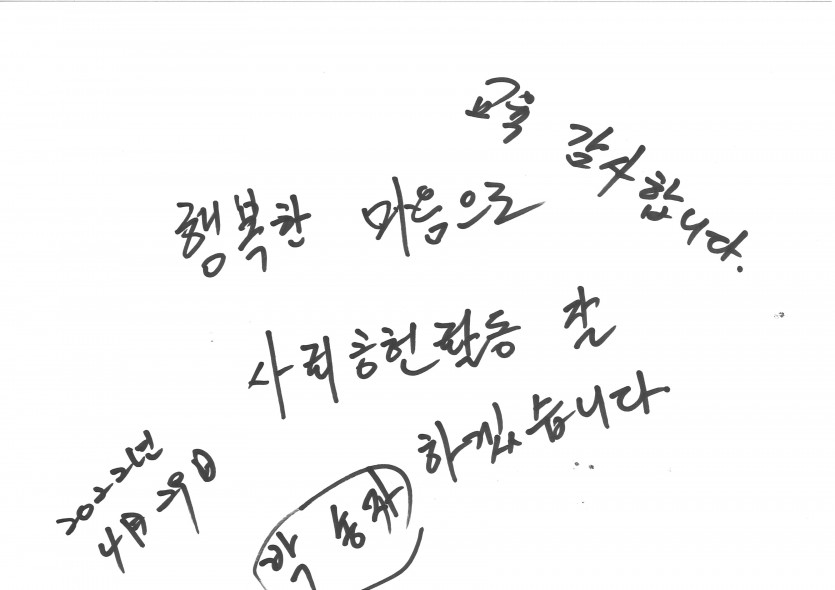 교육 감사합니다.
행복한 마음으로
사회공헌활동 잘
하겠습니다.
2022년
4月 29日